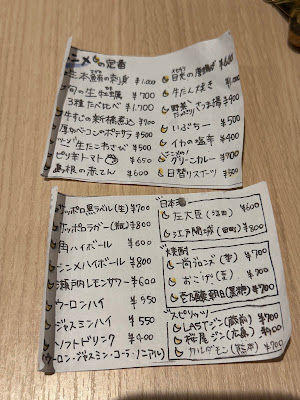 シンメの定番
生本鮪の刺身 ¥1,000
旬の生牡蠣 ¥700
3種食べ比べ ¥1,700
牛すじの新橋煮込 ¥900
厚切ベーコンのポテサラ ¥500
生たこわさび ¥500
ピリ辛トマト ¥650
島根の赤てん ¥600
目光の唐揚げ ¥600
牛たん焼き ¥1,000
野菜 さつま揚 ¥900
いぶちー ¥500
イカの塩辛 ¥400
グリーンカレー ¥700
日替りスイーツ ¥500
サッポロ黒ラベル(生) ¥700
サッポロラガー(瓶) ¥800
角ハイボール ¥600
シンメハイボール ¥800
瀬戸内レモンサワー ¥600
ウーロンハイ ¥550
ジャスミンハイ ¥550
ソフトドリンク ¥400
(ウーロン・ジャスミン・コーラ・ノンアル)
日本
左大臣 ¥600
江戸開城 ¥800
焼酎
尚ブロンズ(麦) ¥700
おこげ(麦) ¥900
壱乃醸朝日(黒糖) ¥700
スピリッツ
LASTジン(蔵前) ¥700
桜尾ジン(広島) ¥900
カルダモン ¥700